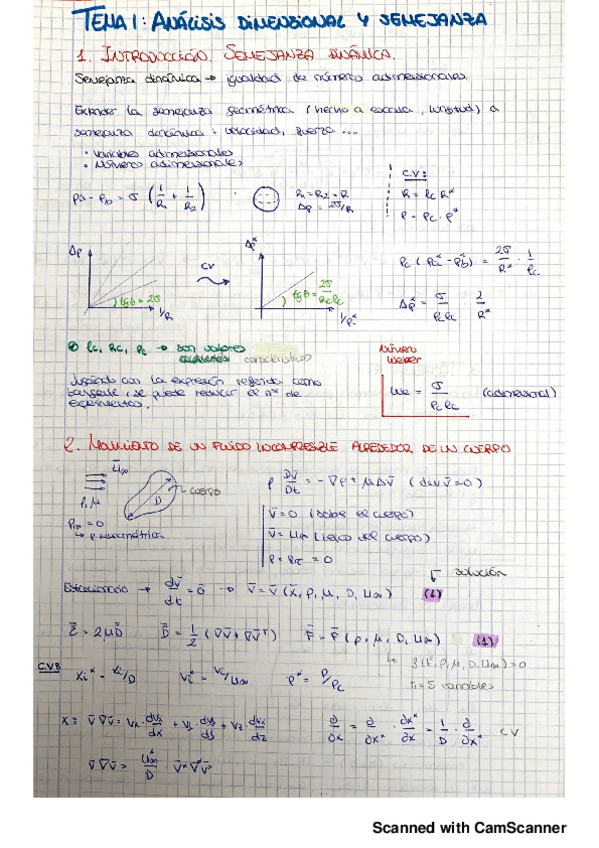 TEMA 1: ANÁLISIS DIMENSIONAL Y SEMEJANZA
1. INTRODUCCIÓN. SEMEJANZA DINÁMICA.
Semejanza dinámica → igualdad de números adimensionales.
Extender la semejanza geométrica (hecho a escala, longitud) a
semejanza dinámica: velocidad, fuerza ...
· Variables adimensionales
· Números adimensionales
Pa - Pb = σ (1/R1 + 1/R2)
R1 = R2 = R
Δp = 2σ/R
C.V:
R = lc R*
P = Pc · P*
Δp
tgθ = 2σ
1/R
CV
Δp*
1/R*
Pc (Pa* - Pb*) = 2σ/R* · 1/lc
Δp* = σ/Pc lc · 2/R*
lc, Rc, Pc → son valores
característicos
la expresión
, se puede reducir el nº de
experimentos.
Número
Weber
We = σ/Pc lc (adimensional)
2. MOVIMIENTO DE UN FLUIDO INCOMPRESIBLE ALREDEDOR DE UN CUERPO
U∞
ρ, μ
D
cuerpo
P∞ = 0
↳ p. manométrica
ρ Dv̄/Dt = -∇P + μΔv̄ (div v̄ = 0)
v̄ = 0 (sobre el cuerpo)
v̄ = U∞ (lejos del cuerpo)
P = P∞ = 0
solución
Estacionario → dv̄/dt = 0̄ → v̄ = v̄ (x̄, ρ, μ, D, U∞) (1)
D̄ = 1/2 (∇v̄ + ∇v̄ᵀ)
F̄ = F̄ (ρ, μ, D, U∞) (1)
n = 5 variables
C.V:
xi* = xi/D
vi* = vi/U∞
P* = P/Pc
x: v̄∇v̄ = vx · dvx/dx + vy · dvx/dy + vz dvx/dz
∂/∂x = ∂/∂x* · ∂x*/∂x = 1/D · ∂/∂x*
CV
v̄∇v̄ = U∞²/D · v̄*∇*v̄*
Scanned with CamScanner